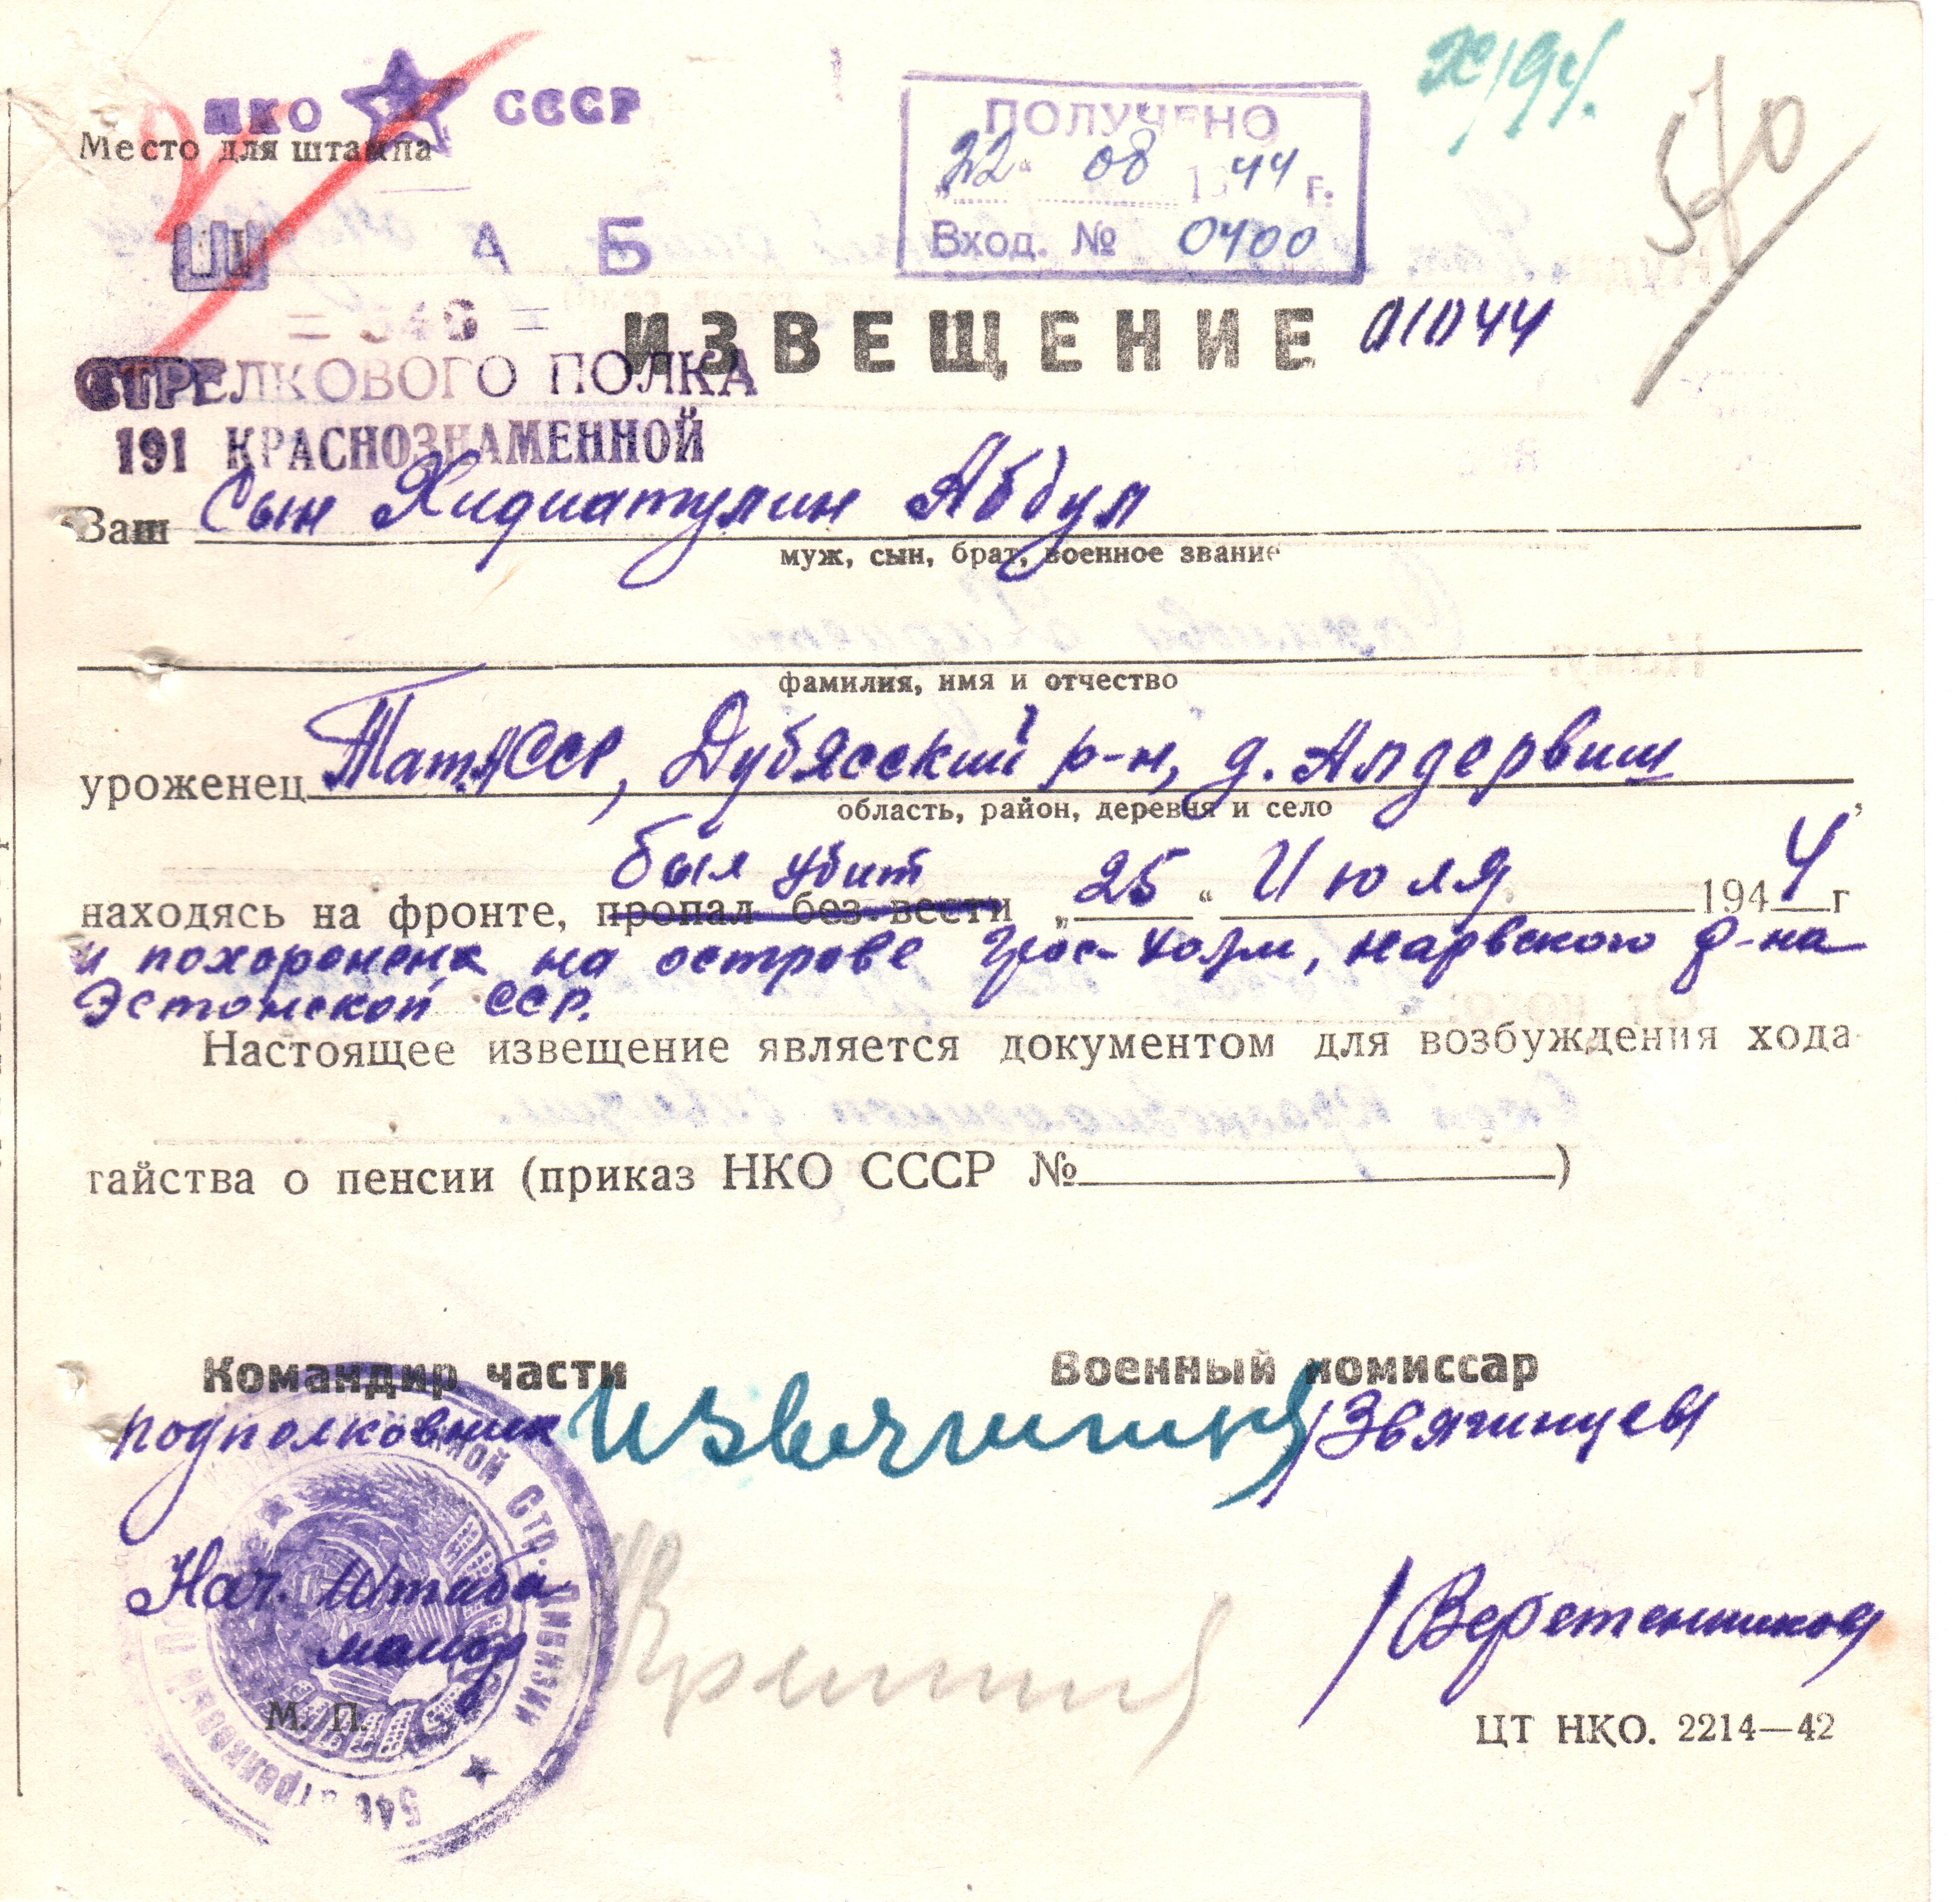 НКО СССР
Место для штампа
ПОЛУЧЕНО
"22" 08 1944 г.
Вход. № 0400
570
Ш А Б
= 546 =
ИЗВЕЩЕНИЕ 01044
СТРЕЛКОВОГО ПОЛКА
191 КРАСНОЗНАМЕННОЙ
Ваш Сын Хидиатулин Абдул
муж, сын, брат, военное звание
фамилия, имя и отчество
уроженец ТатАССР, Дубясский р-н, д. Алдервиш
область, район, деревня и село ,
был убит
находясь на фронте, пропал без вести „25“ Июля 1944 г
и похоронен на острове Грос-Холм, Нарвского р-на
Эстонской ССР.
Настоящее извещение является документом для возбуждения хода-
тайства о пенсии (приказ НКО СССР № )
Командир части Военный комиссар
подполковник /Звягинцев/
Нач. Штаба
майор /Веретенников/
М. П.
ЦТ НКО. 2214—42